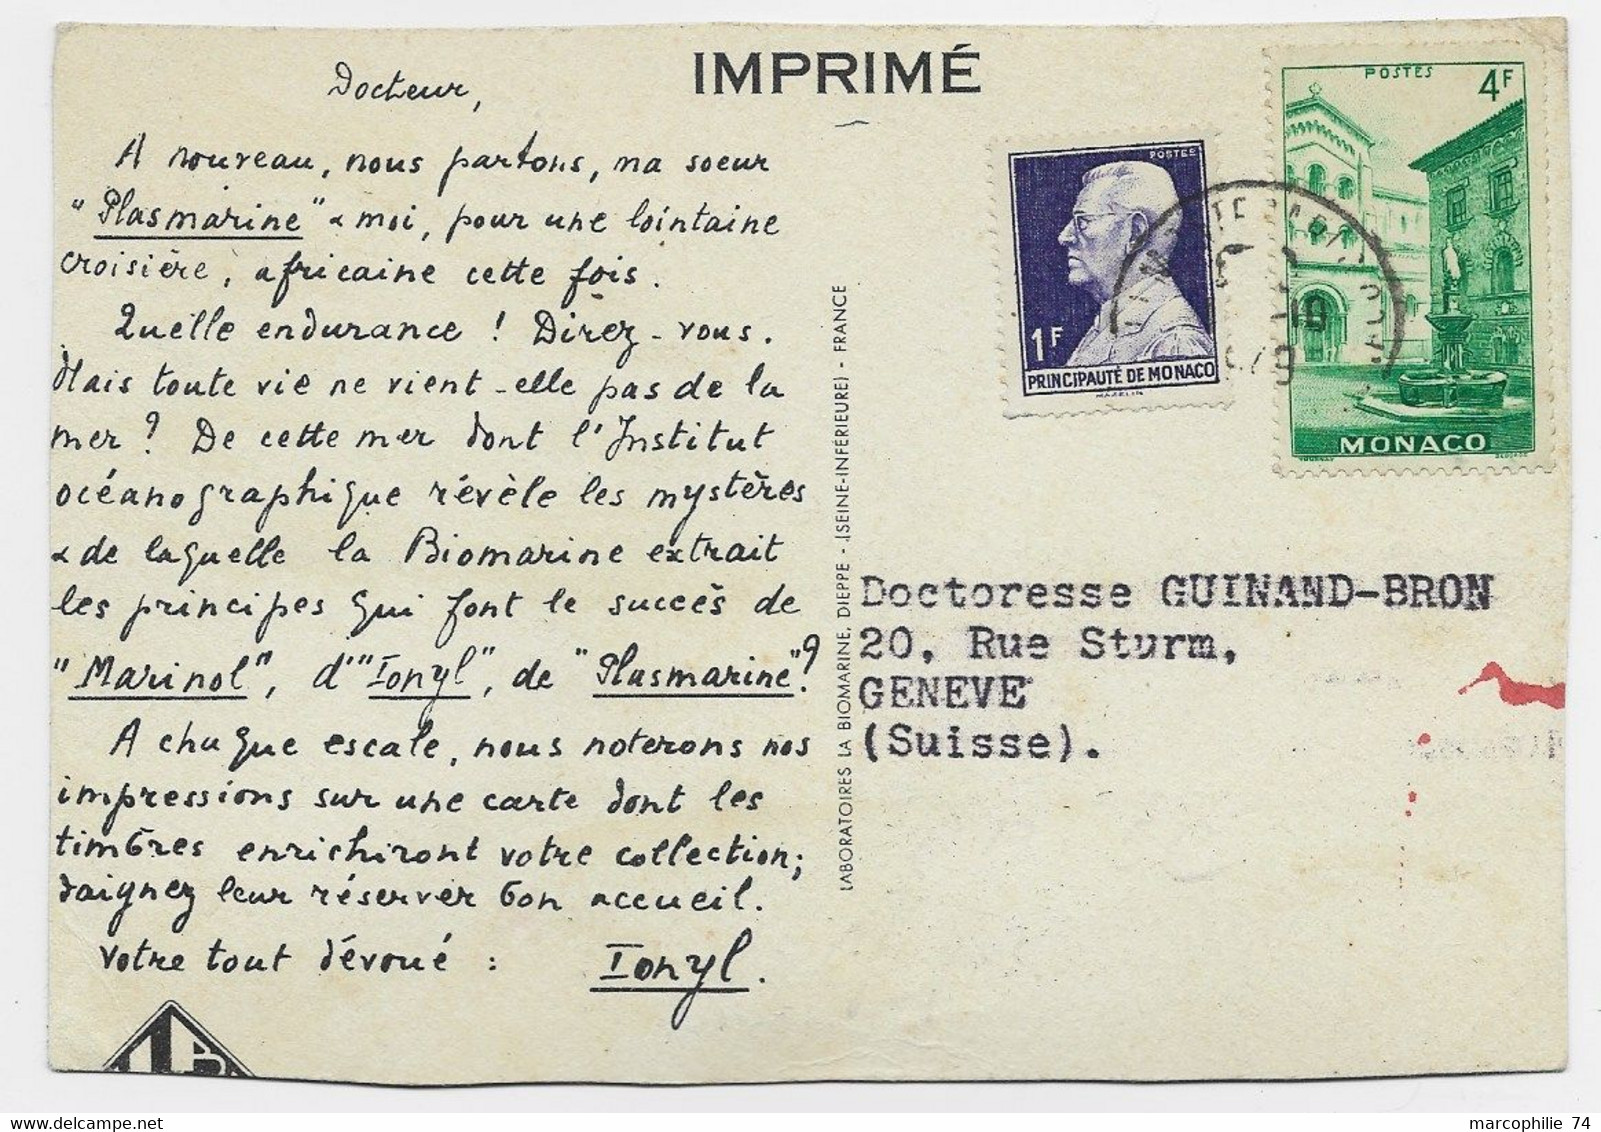 IMPRIMÉ
Docteur,
A nouveau, nous partons, ma soeur
"Plasmarine" & moi, pour une lointaine
croisière, africaine cette fois.
Quelle endurance ! Direz-vous.
Mais toute vie ne vient-elle pas de la
mer ? De cette mer dont l'Institut
océanographique révèle les mystères
& de laquelle la Biomarine extrait
les principes qui font le succès de
"Marinol", d'"Ionyl", de "Plasmarine"?
A chaque escale, nous noterons nos
impressions sur une carte dont les
timbres enrichiront votre collection;
daignez leur réserver bon accueil.
Votre tout dévoué : Ionyl.
LABORATOIRES LA BIOMARINE, DIEPPE - (SEINE-INFÉRIEURE) - FRANCE
POSTES
1F
PRINCIPAUTÉ DE MONACO
POSTES
4F
MONACO
Doctoresse GUINAND-BRON
20, Rue Sturm,
GENEVE
(Suisse).
marcophilie 74